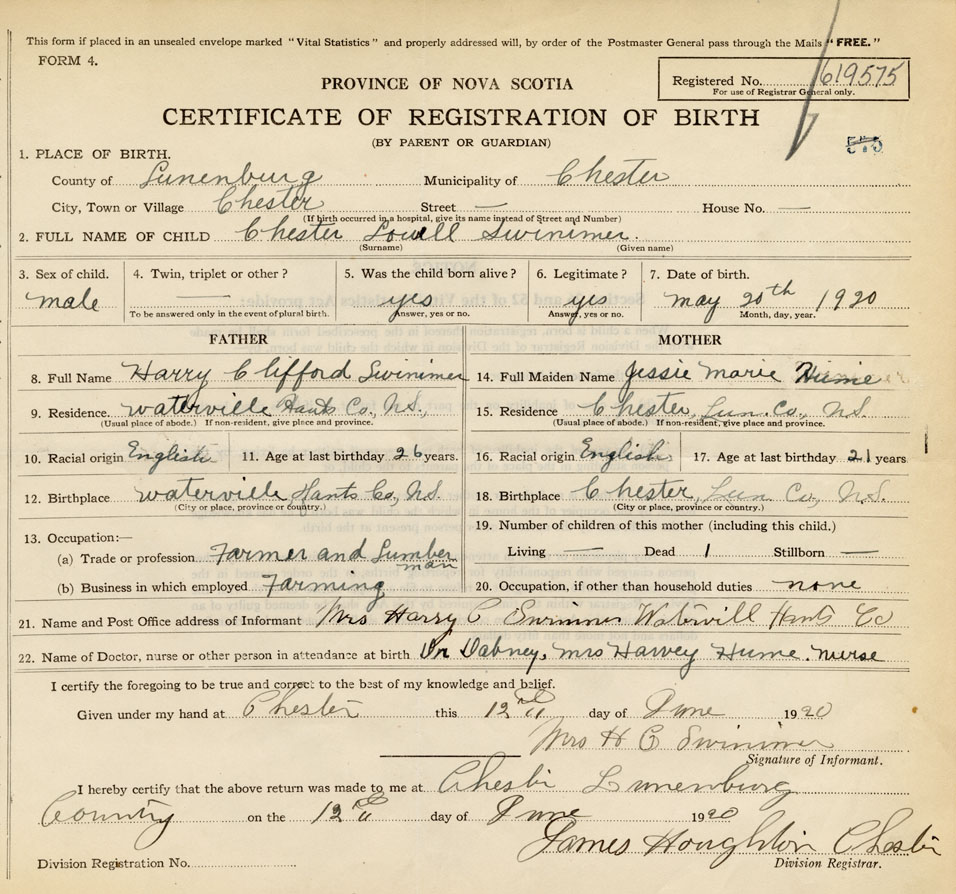 This form if placed in an unsealed envelope marked "Vital Statistics" and properly addressed will, by order of the Postmaster General pass through the Mails "FREE."
FORM 4.
Registered No. 619575
For use of Registrar General only.
PROVINCE OF NOVA SCOTIA
CERTIFICATE OF REGISTRATION OF BIRTH
(BY PARENT OR GUARDIAN)
575
1. PLACE OF BIRTH.
County of Lunenburg Municipality of Chester
City, Town or Village Chester Street — House No. —
(If birth occurred in a hospital, give its name instead of Street and Number)
2. FULL NAME OF CHILD Chester Lowell Swinimer.
(Surname) (Given name)
3. Sex of child. 4. Twin, triplet or other? 5. Was the child born alive? 6. Legitimate? 7. Date of birth.
male — yes yes May 20th 1920
To be answered only in the event of plural birth. Answer, yes or no. Answer, yes or no. Month, day, year.
FATHER MOTHER
8. Full Name Harry Clifford Swinimer 14. Full Maiden Name Jessie Marie Hume
9. Residence. Waterville Hants Co., N.S., 15. Residence Chester, Lun. Co., N.S.
(Usual place of abode.) If non-resident, give place and province. (Usual place of abode.) If non-resident, give place and province.
10. Racial origin English 11. Age at last birthday 26 years. 16. Racial origin English 17. Age at last birthday 21 years
12. Birthplace Waterville Hants Co, N.S. 18. Birthplace Chester, Lun. Co, N.S.
(City or place, province or country.) (City or place, province or country.)
13. Occupation:— 19. Number of children of this mother (including this child.)
(a) Trade or profession Farmer and Lumber man Living — Dead 1 Stillborn —
(b) Business in which employed Farming 20. Occupation, if other than household duties none
21. Name and Post Office address of Informant Mrs Harry C Swinimer Watervill Hants Co
22. Name of Doctor, nurse or other person in attendance at birth Dr Dabney, Mrs Harvey Hume. Nurse
I certify the foregoing to be true and correct to the best of my knowledge and belief.
Given under my hand at Chester this 12th day of June 1920
Mrs H C Swinimer
Signature of Informant.
I hereby certify that the above return was made to me at Chester Lunenburg
County on the 12th day of June 1920
James Houghton Chester
Division Registration No. Division Registrar.